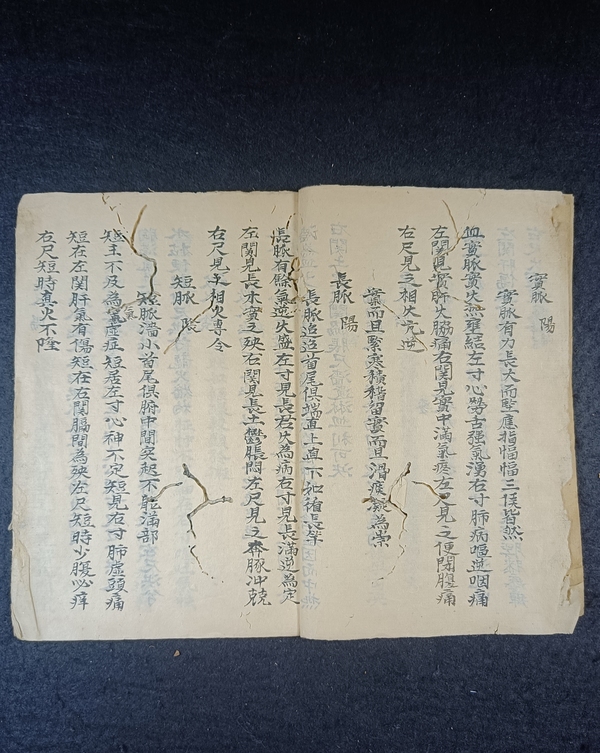 實脈 陽
實脈有力長大而堅應指愊愊三候皆然
血實脈實火熱壅結左寸心勞舌強氣湧右寸肺病嘔逆咽痛
左関見實肝火脇痛右関見實中滿氣疼左尺見之便閉腹痛
右尺見之相火亢逆
實而且緊寒積稽留實而且滑痰凝為祟
長脈 陽
長脈迢迢首尾俱端直上直下如循長竿
長脈有餘氣逆火盛左寸見長君火為病右寸見長滿逆為定
左関見長木實之殃右関見長土鬱脹悶左尺見之奔豚冲兢
右尺見之相火專令
短脈 陰
短脈濇小首尾俱俯中間突起不能滿部
短主不及為氣虛症短居左寸心神不定短見右寸肺虛頭痛
氣
短在左関肝氣有傷短在右関膈間為殃左尺短時少腹必痒
右尺短時真火不隆